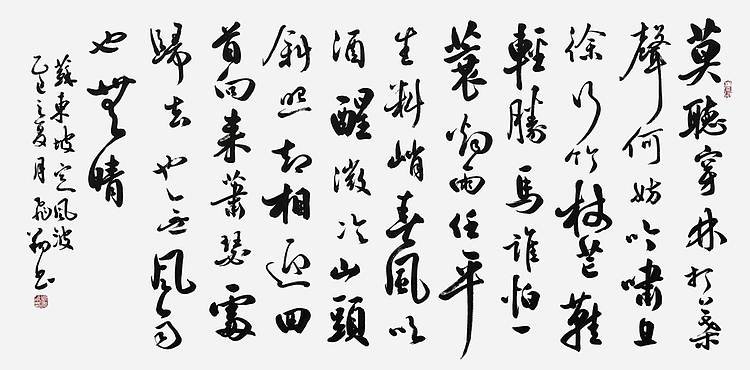 莫聽穿林打葉
聲何妨吟嘯且
徐行竹杖芒鞋
輕勝馬誰怕一
蓑烟雨任平
生料峭春風吹
酒醒微冷山頭
斜照却相迎回
首向来蕭瑟處
歸去也無風雨
也無晴
蘇東坡定風波
乙巳之夏月書